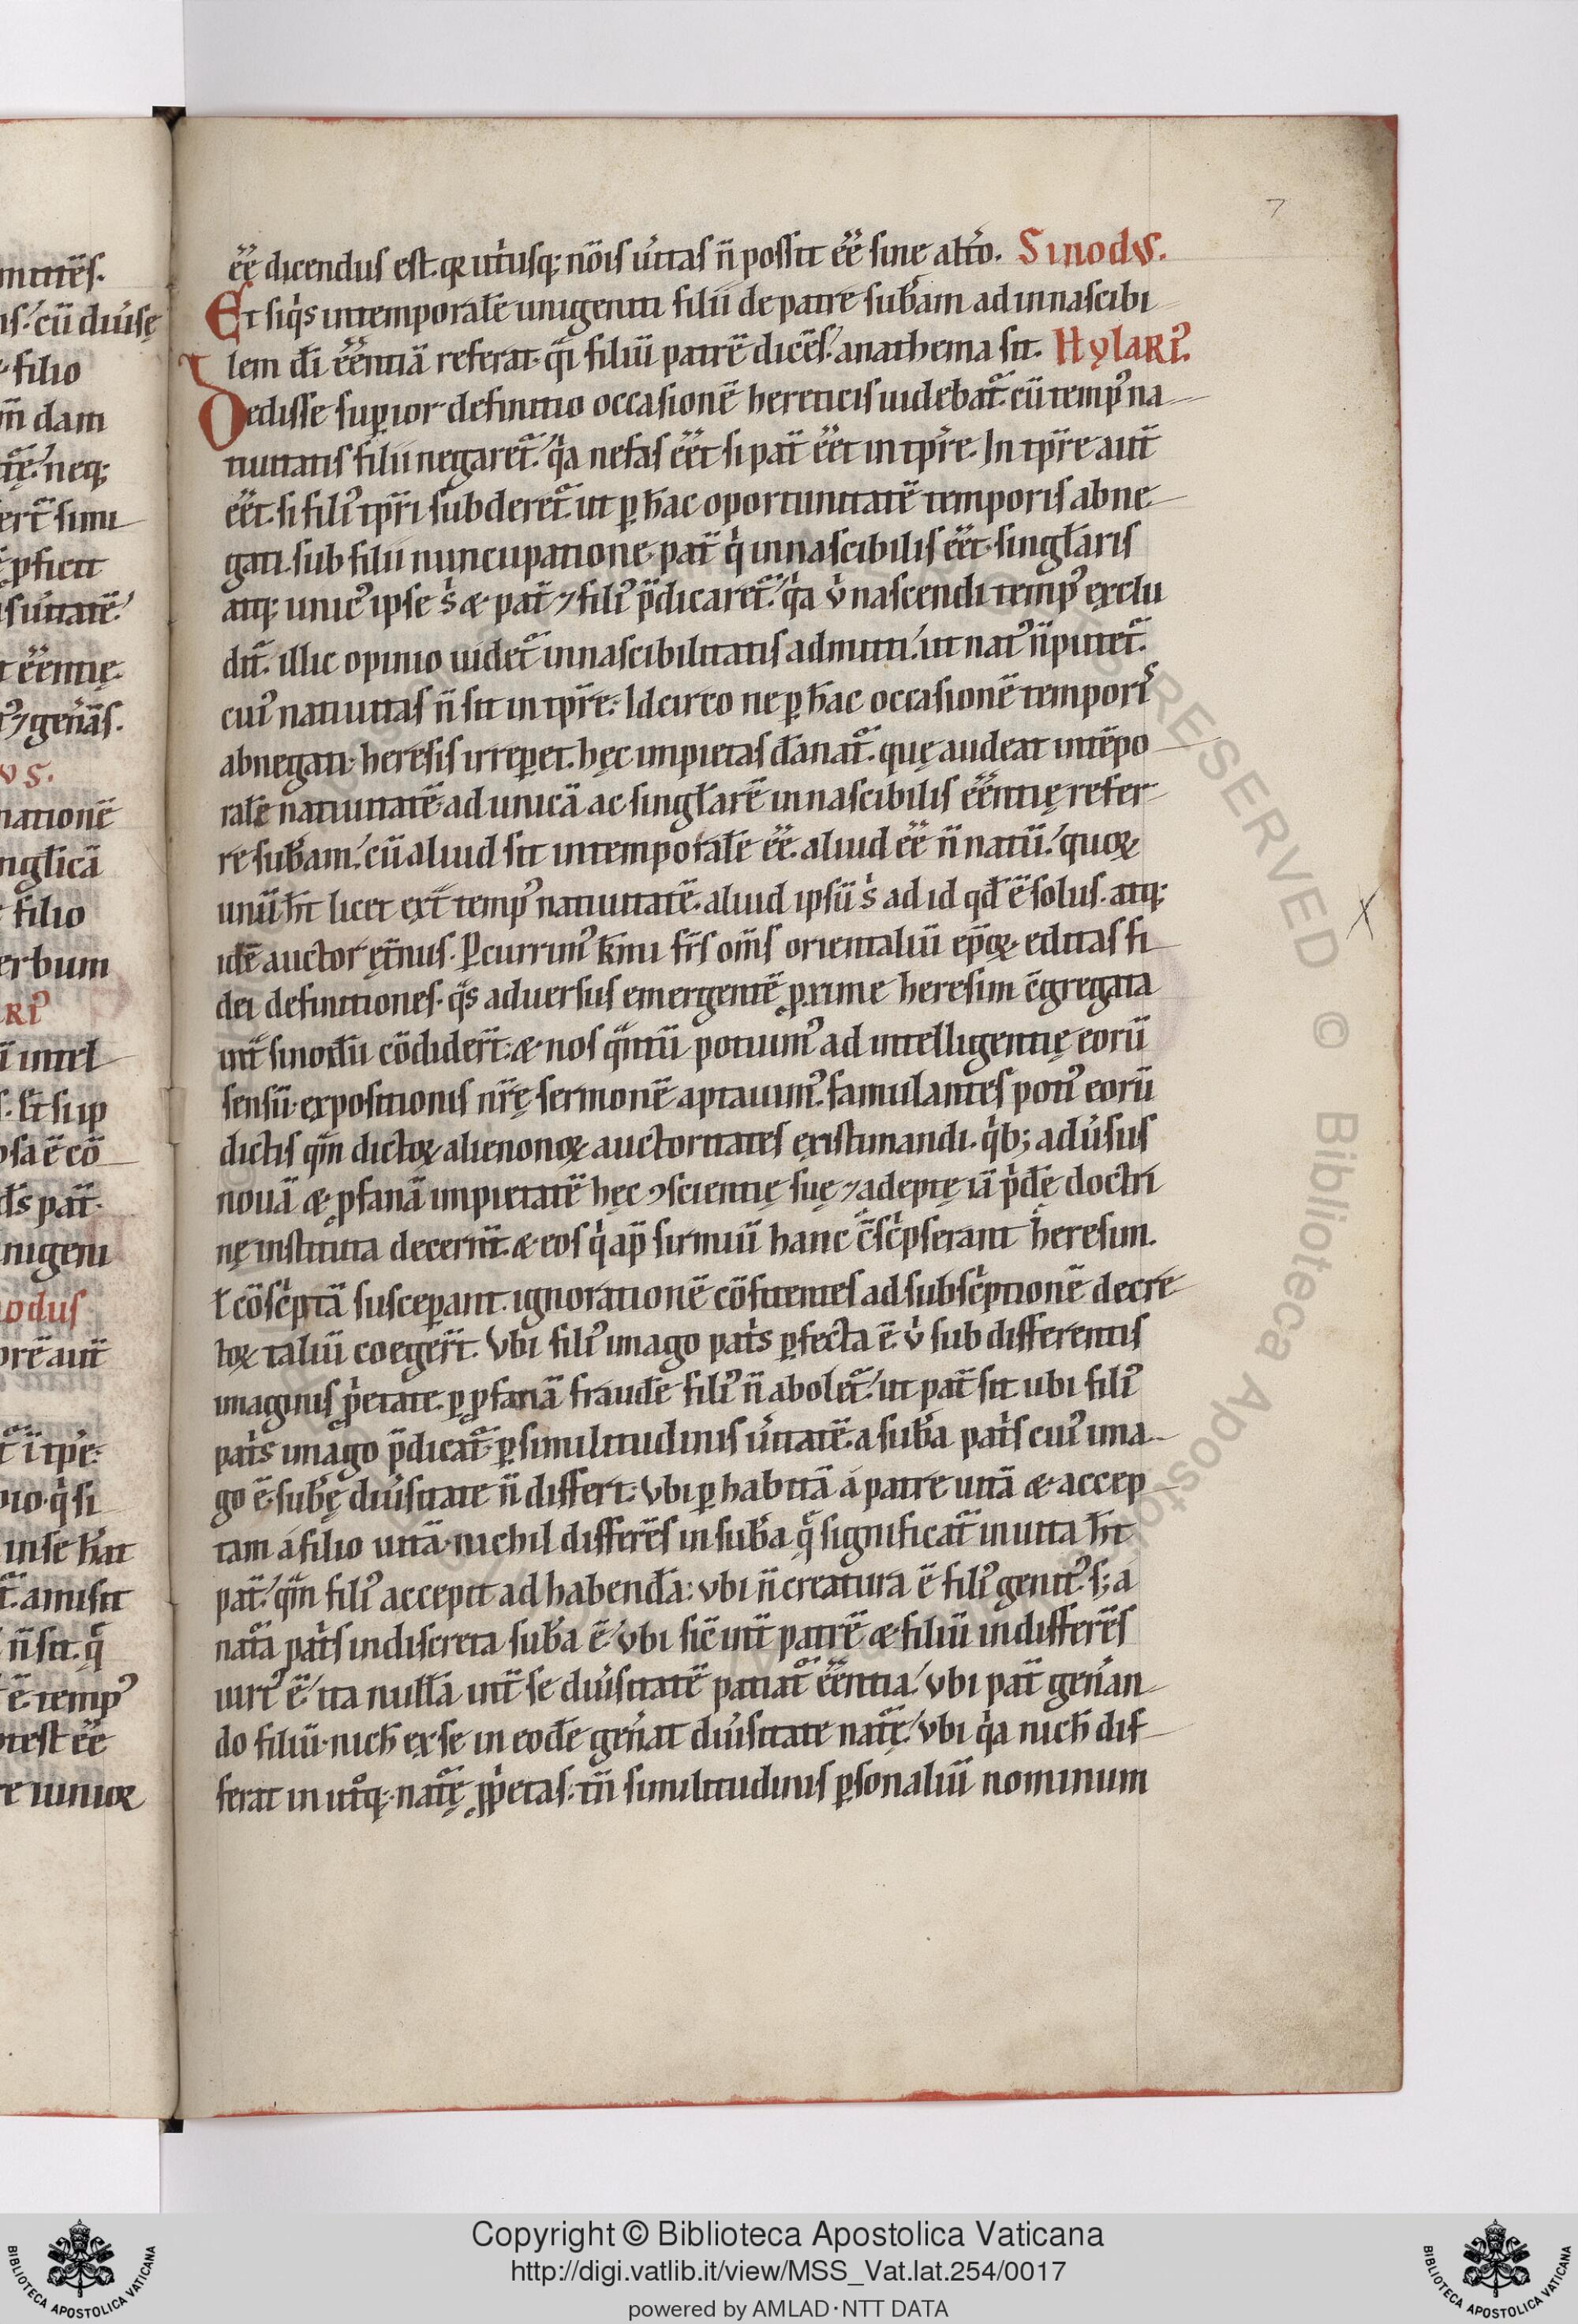 7
ee̅ dicendus est. qꝛ utꝰusq; no̅is uꝰitas n̅ possit ee̅ sine altꝰo. Sinodus.
Et siqͥs intemporale̅ unigeniti filii de patre sub̅am ad innascibi
lem di̅ ee̅ntia̅ referat. qͣi filiu̅ patre̅ dice̅s. anathema sit. Hylariꝰ.
Dedisse sup̱ior definitio occasione̅ hereticis uidebat᷑. cu̅ tempꝰ na
tiuitatis filii negaret᷑. qͥa nefas ee̅t si pat̅ ee̅t in tp̅re. In tp̅re aut̅
ee̅t. si filiꝰ tp̅ri subderet᷑. ut ꝑ h̅ac oportunitate̅ temporis abne
gati. sub filii nuncupatione. pat̅ qͥ innascibilis ee̅t. singl̅aris
atq; unicꝰ ipse sͥ & pat̅ ⁊ filiꝰ p̅dicaret᷑. qͥa ůnascendi tempꝰ exclu
dit᷑. illic opinio uidet᷑ innascibilitatis admitti. ut natꝰ n̅ putet᷑.
cuiꝰ natiuitas n̅ sit in tp̅re. Idcirco ne ꝑ h̅ac occasione̅ temporiꝰ
abnegati. heresis irreꝑet. hęc impietas da̅nat᷑. quę audeat inte̅po
rale̅ natiuitate̅ ad unica̅ ac singl̅are̅ innascibilis ee̅ntię refer
re sub̅am. cu̅ aliud sit intemporale̅ ee̅. aliud ee̅ n̅ natu̅. quoꝝ
unu̅ h̅t licet ext̅ tempꝰ natiuitate̅. aliud ipsu̅ sͥ ad id qd̅ e̅ solus. atq;
ide̅ auctor ęt̅nus. Ꝑcurrimꝰ k̅mi fr̅s om̅s orientaliu̅ ep̅oꝝ. editas fi
dei definitiones. qͣs aduersus emergente̅ ꝓxime heresim c̅gregata
int̅ sinodu̅ co̅dider̅t. & nos qͣntu̅ potuimꝰ ad intelligentię eoru̅
sensu̅. expositionis nr̅ę sermone̅ aptauimꝰ. famulantes potiꝰ eoru̅
dictis qͣm dictoꝝ alienonoꝝ auctoritates existimandi. qͥb; adůsus
noua̅ & ꝓfana̅ impietate̅ hęc ꝯscientię suę ⁊ adeptę ia̅ pͥde̅ doctri
nę instituta decern̅t. & eos qͥ ap̅ sirmiu̅ hanc c̅scͥpserant heresim.
ł co̅scͥpta̅ susceꝑant. ignoratione̅ co̅fitentes ad subscͥptione̅ decre
toꝝ taliu̅ coeger̅t. Vbi filiꝰ imago patͥs ꝑfecta e̅. ů sub differentis
imaginis ꝓpͥetate. ꝑ ꝓfana̅ fraude̅ filiꝰ n̅ abolet᷑. ut pat̅ sit ubi filiꝰ
patͥs imago p̅dicat᷑. ꝑ similitudinis ůitate̅. a sub̅a patͥs cuiꝰ ima
go e̅. sub̅ę diůsitate n̅ differt. Vbi ꝑ habita̅ á patre uita̅ & accep
tam á filio uita̅. nichil differe̅s in sub̅a qͣ significat᷑ in uita h̅t
pat̅. qͣm filiꝰ accepit ad habenda̅. vbi n̅ creatura e̅ filiꝰ genitꝰ. s; á
nat᷑a patͥs indiscreta sub̅a e̅. Vbi sic̅ int̅ patre̅ & filiu̅ indiffere̅s
uirtꝰ e̅. ita nulla̅ int̅ se diůsitate̅ patiat᷑ ee̅ntia. Vbi pat̅ gen̅an
do filiu̅. nich̅ ex se in eode̅ gen̅at diůsitate nat᷑ę. Vbi qͥa nich̅ dif
ferat in utͦq; nat᷑ę ꝓpͥetas. tn̅ similitudinis ꝑsonaliu̅ nominum
Copyright © Biblioteca Apostolica Vaticana
http://digi.vatlib.it/view/MSS_Vat.lat.254/0017
powered by AMLAD·NTT DATA
BIBLIOTECA APOSTOLICA VATICANA
BIBLIOTECA APOSTOLICA VATICANA